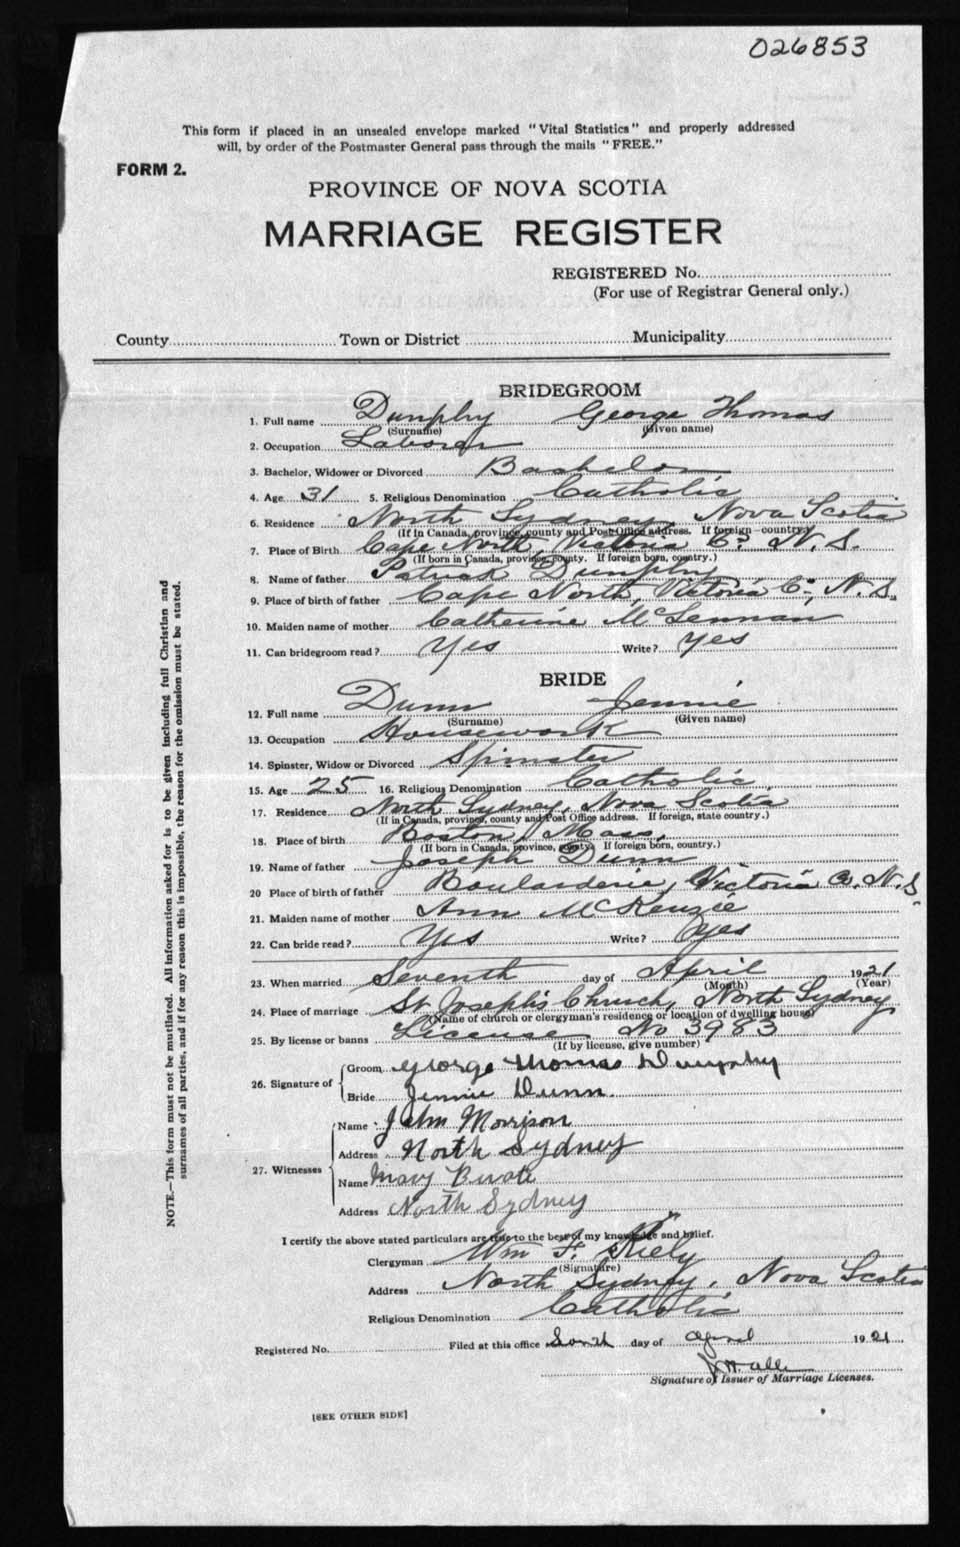 026853
This form if placed in an unsealed envelope marked "Vital Statistics" and properly addressed
will, by order of the Postmaster General pass through the mails "FREE."
FORM 2.
PROVINCE OF NOVA SCOTIA
MARRIAGE REGISTER
REGISTERED No.
(For use of Registrar General only.)
County Town or District Municipality
BRIDEGROOM
1. Full name Dunphy George Thomas
(Surname) (Given name)
2. Occupation Laborer
3. Bachelor, Widower or Divorced Bachelor
4. Age 31 5. Religious Denomination Catholic
6. Residence North Sydney, Nova Scotia
(If in Canada, province, county and Post Office address. If foreign country.)
7. Place of Birth Cape North, Victoria Co. N. S.
(If born in Canada, province, county. If foreign born, country.)
8. Name of father Patrick Dunphy
9. Place of birth of father Cape North, Victoria Co., N. S.
10. Maiden name of mother Catherine McLennan
11. Can bridegroom read? Yes Write? yes
BRIDE
12. Full name Dunn Jennie
(Surname) (Given name)
13. Occupation Housework
14. Spinster, Widow or Divorced Spinster
15. Age 25 16. Religious Denomination Catholic
17. Residence North Sydney, Nova Scotia
(If in Canada, province, county and Post Office address. If foreign, state country.)
18. Place of birth Boston, Mass,
(If born in Canada, province, county. If foreign born, country.)
19. Name of father Joseph Dunn
20 Place of birth of father Boularderie, Victoria Co. N. S.
21. Maiden name of mother Ann McKenzie
22. Can bride read? Yes Write? Yes
23. When married Seventh day of April 1921
(Month) (Year)
24. Place of marriage St. Joseph's Church, North Sydney
(Name of church or clergyman's residence or location of dwelling house)
25. By license or banns License No 3983
(If by license, give number)
26. Signature of
Groom George Thomas Dunphy
Bride Jennie Dunn.
27. Witnesses
Name John Morrison
Address North Sydney
Name Mary
Address North Sydney
I certify the above stated particulars are true to the best of my knowledge and belief.
Clergyman Wm F. Kiely
(Signature)
Address North Sydney, Nova Scotia
Religious Denomination Catholic
Registered No. Filed at this office day of April 1921
Signature of Issuer of Marriage Licenses.
[SEE OTHER SIDE]
NOTE.—This form must not be mutilated. All information asked for is to be given including full Christian and
surnames of all parties, and if for any reason this is impossible, the reason for the omission must be stated.